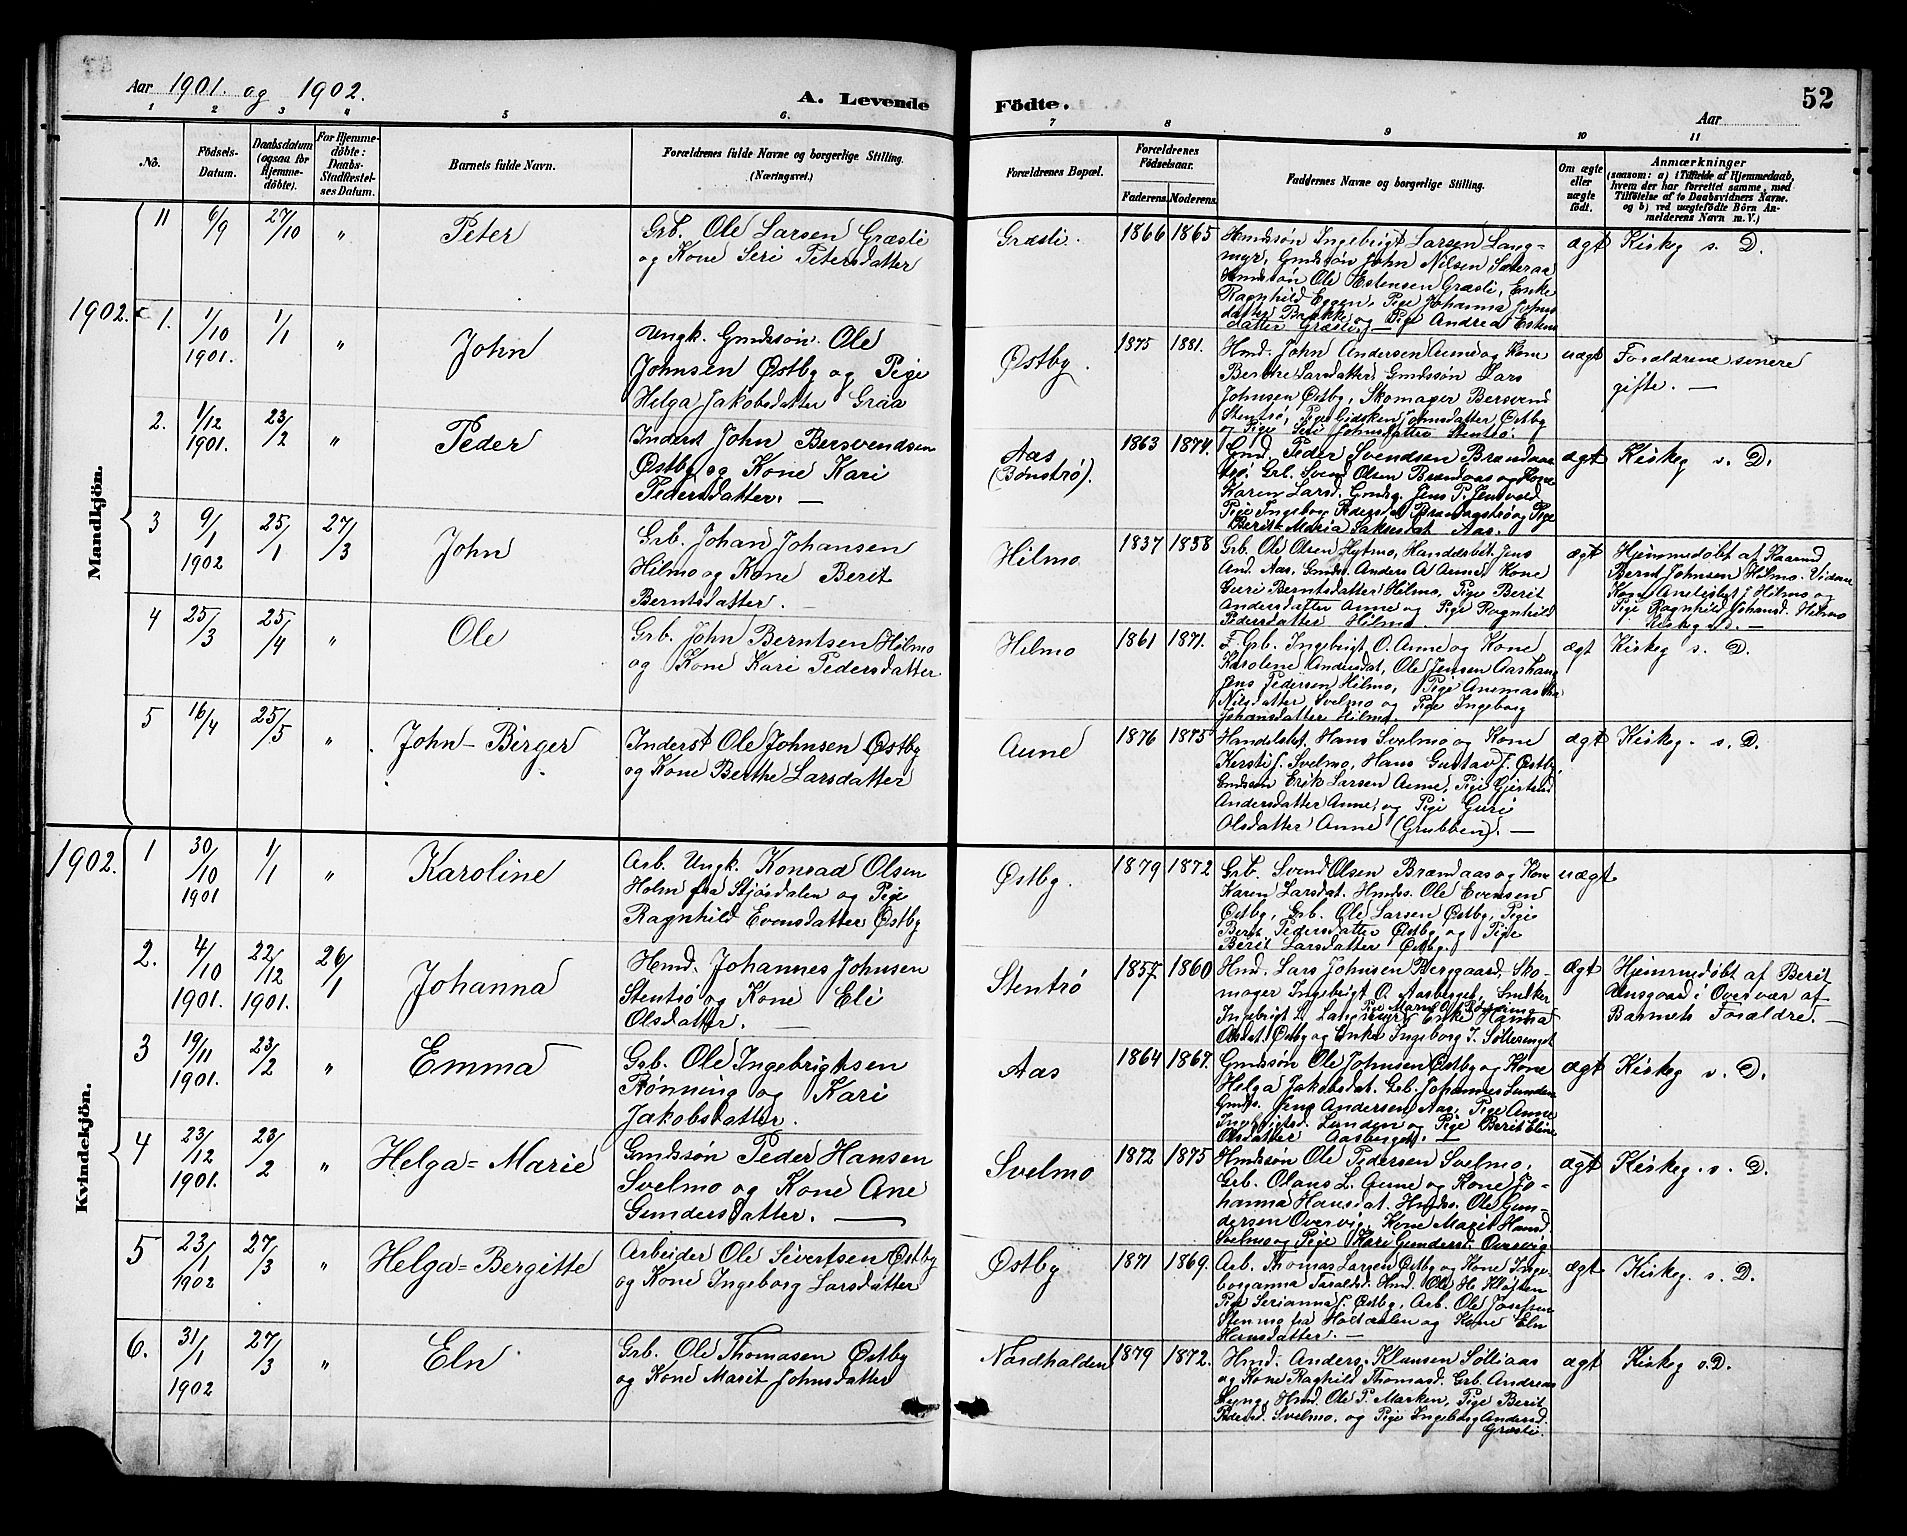 Aar 1901 og 1902.
A. Levende
Födte.
52
Aar
1 2 3 " 5 6. 7 8 9 10 11
No.
Födsels-Datum.
Daabsdatum (ogsaa for Hjemme-döbte).
For Hjemme-döbte: Daabs-Stadfæstel-ses Datum.
Barnets fulde Navn.
Forældrenes fulde Navne og borgerlige Stilling.
(Næringsvei.)
Forældrenes Bopæl.
Forældrenes Födselsaar.
Faderens. Moderens.
Faddernes Navne og borgerlige Stilling.
Om ægte eller uægte födt.
Anmærkninger
(saasom: a) i Tilfælde af Hjemmedaab,
hvem der har forrettet samme, med
Tilföielse af to Daabsvidners Navne.
og b) ved uægtefödte Börn An-
melderens Navn m. V.)
Mandkjön.
11 6/9 27/10 " Peter
Grb. Ole Larsen Græsli
og Kone Seri Petersdatter
Græsli. 1866 1865
Hmdssøn Ingebrigt Larsen Lang-
myr, Gmdssøn John Nilsen Sæteraa
Hmdssøn Ole Estensen Græsli, Enke
Ragnhild Eggen, Pige Johanna Johns
datter Bakke og Pige Andrea Estens
datter Græsli. —
ægt Kirkeg s. D.
1902.
1. 1/10 1901. 1/1 " John
Ungk. Gmdssøn Ole
Johnsen Østby og Pige
Helga Jakobsdatter Graa
Østby. 1875 1881.
Hmd. John Andersen Aune og Kone
Berthe Larsdatter, Gmdssøn Lars
Johnsen Østby, Skomager Bersvend
Stentrø, Pige Gidsken Johnsdatter Østby
og Pige Seri Johnsdatter Stentrø.
uægt Forældrene senere
gifte. —
2. 1/12 1901. 23/2 " Peder
Inderst John Bersvendsen
Østby og Kone Kari
Pedersdatter. —
Aas
(Bønstrø).
1863 1874.
Gmd. Peder Svendsen Brandaas
trø, Grb. Svend Olsen Brændaas og Kone
Karen Larsd. Gmdsg. Jens P. Jensvold
Pige Ingeborg Pedersdat. Brandaastrø og Pige
Berit Maria Saksesdat. Aas.
ægt Kirkeg s. D.
3 9/1 1902 25/1 27/3 John
Grb. Johan Johansen
Hilmo og Kone Berit
Berntsdatter. —
Hilmo 1837 1858
Grb. Ole Olsen Kytmo, Handelsbet. Jens
And. Aas, Gmds. Anders A Aune, Kone
Guri Berntsdatter Hilmo, Pige Berit
Andersdatter Aune og Pige Ragnhild
Pedersdatter Hilmo.
ægt Hjemmedøbt af Kaarmd
Bernt Johnsen Hilmo. Vidner
Kone J Hilmo og
Pige Ragnhild Johansd. Hilmo
Kirkeg s. D. —
4 25/3 25/4 " Ole
Grb. John Berntsen Hilmo
og Kone Kari Pedersdatter
Hilmo 1861 1871.
F. Grb. Ingebrigt O. Aune og Kone
Karoline Andersdat., Ole Jensen Aashaug
Jens Pedersen Hilmo, Pige Anemartha
Nilsdatter Svelmo og Pige Ingeborg
Johansdatter Hilmo.
ægt Kirkeg s. D.
5 16/4 25/5 " John-Birger
Inderst Ole Johnsen Østby
og Kone Berthe Larsdatter
Aune 1876 1875
Handelsbet. Hans Svelmo og Kone
Kersti J. Svelmo, Hans Gustav J. Østby,
Gmdssøn Erik Larsen Aune, Pige Gjertrud
Andersdatter Aune, og Pige Guri
Olsdatter Aune (Grubben). —
ægt Kirkeg. s. D.
Kvindekjön.
1902.
1 30/10 1901 1/1 " Karoline
Arb. Ungk. Konrad Olsen
Holm fra Stjørdalen og Pige
Ragnhild Evensdatter Østby
Østby. 1879 1872
Grb. Svend Olsen Brændaas og Kone
Karen Larsdat. Hmds. Ole Evensen
Østby, Grb. Ole Larsen Østby, Pige
Berit Pedersdatter Østby og Pige
Berit Larsdatter Østby.
uægt
2. 4/10 1901. 22/12 1901. 26/1 Johanna
Hmd. Johannes Johnsen
Stentrø og Kone Eli
Olsdatter. —
Stentrø 1857 1860
Hmd. Lars Johnsen Berggaard, Sko-
mager Ingebrigt O. Aasberget, Snilker
Pige Maren O. Rønning
Ingebrigt L. Langmyr, Enke Hanna
Olsdat. Østby og Enke Ingeborg J. Sølleringet
Ægt Hjemmedøbt af Berit
Unsgaard i Overvær af
Barnets Forældre. —
3 19/11 1901. 23/2 " Emma
Grb. Ole Ingebrigtsen
Rønning og Kari
Jakobsdatter.
Aas 1864 1867.
Gmdssøn Ole Johnsen Østby og Kone
Helga Jakobsdat. Grb. Johannes Lunden
Gmds. Jens Andersen Aas, Pige Anne
Ingebrigtsd. Lunden og Pige Berit Eline
Olsdatter Aasberget. —
ægt Kirkeg s. D.
4 23/12 1901. 23/2 " Helga=Marie
Gmdssøn Peder Hansen
Svelmo og Kone Ane
Gundersdatter. —
Svelmo 1872 1875
Hmdssøn Ole Pedersen Svelmo,
Grb. Olaus L. Aune og Kone Jo-
hanna Hansdat. Hmds. Ole Gun-
dersen Overvig, Kone Marit Hansd.
Svelmo og Pige Kari Gundersd. Overvig
ægt Kirkeg. s. D.
5 23/1 1902 27/3 " Helga=Bergitte
Arbeider Ole Sivertsen Østby
og Kone Ingeborg Larsdatter
Østby 1871 1869.
Arb. Thomas Larsen Østby og Kone Inge-
borganna Taraldsd. Hmd. Ole H. Kløften
Pige Serianna J. Østby, Arb. Ole Josefsen
Stenmo fra Holtaalen og Kone Eln
Hansdatter. —
ægt Kirkeg. s. D.
6. 31/1 1902 27/3 " Eln
Grb. Ole Thomasen Østby
og Kone Marit Johnsdatter
Nordhalden 1879 1872.
Hmd. Anders Klausen Sølliaas
og Kone Raghild Thomasd. Grb. Andreas
Lyng, Hmd. Ole P. Marken, Pige Berit
Pedersd. Svelmo, og Pige Ingeborg Andersd.
Græsli.
ægt Kirkeg s. D.